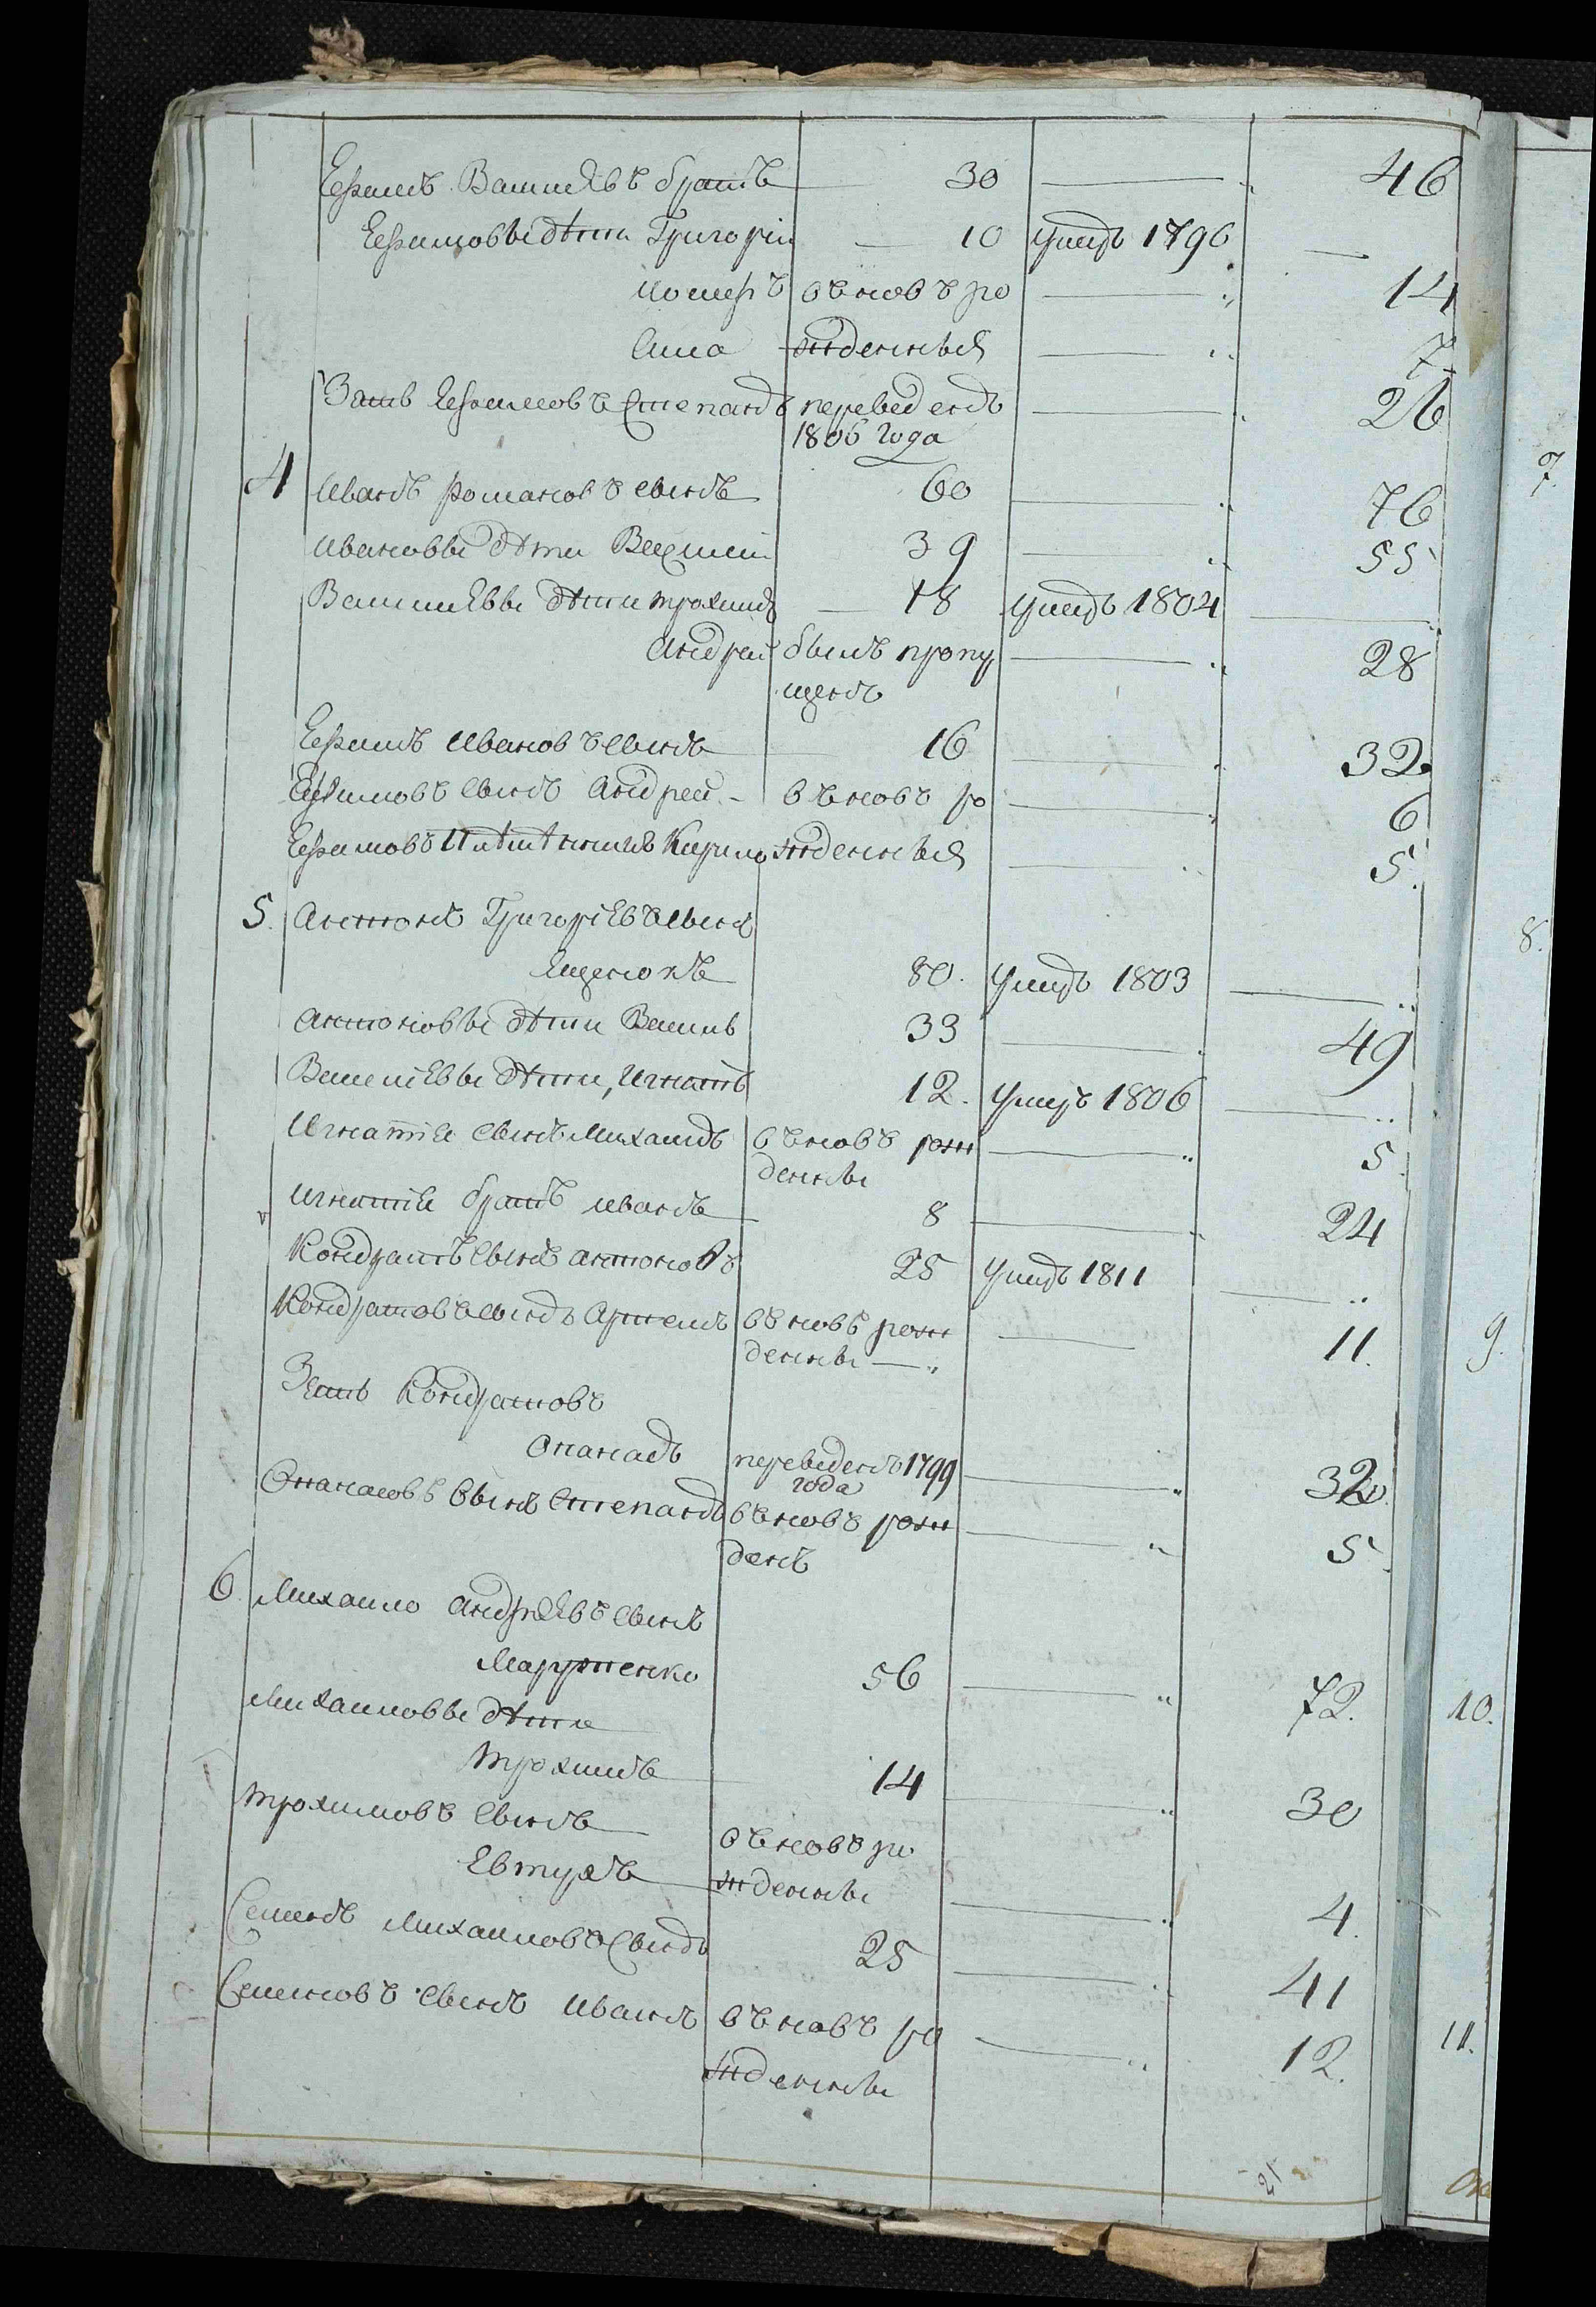 Ефимъ Васильевъ братъ 30 — „ 46
Ефимовы дѣти Григорiи — 10 умеръ 1796 —
вновь ро — „ 14
жденныя — „ 7
Зять Ефимовъ Степанъ переведенъ — 26
1806 Года
4 Иванъ романовъ сынъ 60 — „ 76
Ивановы дѣти Василiи 39 — „ 55
Василiевы дѣти трохимъ — 18 умеръ 1804 — „
Андреи былъ пропу — „ 28
щенъ
Ефимъ Ивановъ сынъ 16 — „ 32
Ефимовъ сынъ Андреи — въновъ ро — „ 6
Ефимовъ Племѣнникъ Кирило жденныя — „ 5.
5. Антонъ Григорiевъ сынъ
Ещенокъ 80. умеръ 1803 — „
Антоновы дѣти Василь 33 — 49
Василiевы дѣти, Игнатъ 12. умеръ 1806 — „
Игнатiя сынъ Михаилъ въновъ рож — „ 5
денны
Игнатiя братъ иванъ 8 — „ 24
Кондратъ сынъ антоновъ 25 умеръ 1811 — „
Кондратовъ сынъ Артемъ въновъ рож — 11.
денны — „
Зять Кондратовъ
Опанасъ переведенъ 1799 — „ 32
года
Опанасовъ сынъ Степанъ въновъ рож — „ 5
денъ
6. Михаило андрѣевъ сынъ
56 — „ 72.
Михаиловы дѣти
Трохимъ 14 — „ 30
трохимовъ сынъ въновъ ро
Евтухъ жденны — „ 4
Семенъ Михаиловъ сынъ 25 — „ 41
Семеновъ сынъ иванъ въновъ ро — „ 12.
жденны
21
7.
8.
9.
10.
11.